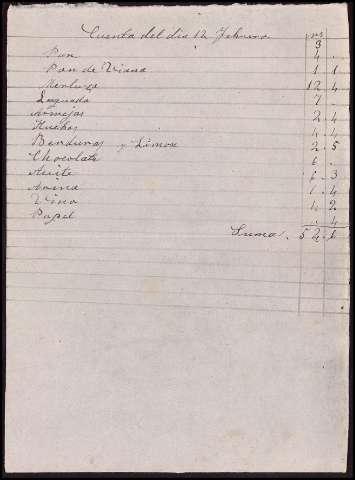 Cuenta del dia 12 Febrero rs
3
Pan 4 .
Pan de Viana 1 1
Merluza 12 4
Lenguado 7 .
Almejas 2 4
Huebos 4 4
Berduras y Limon 2 . 5
Chocolate 6 .
Aceite 6 . 3
Arina 1 . 4
Vino 4 2
Papel . 4
Suma . 5 4 . 6